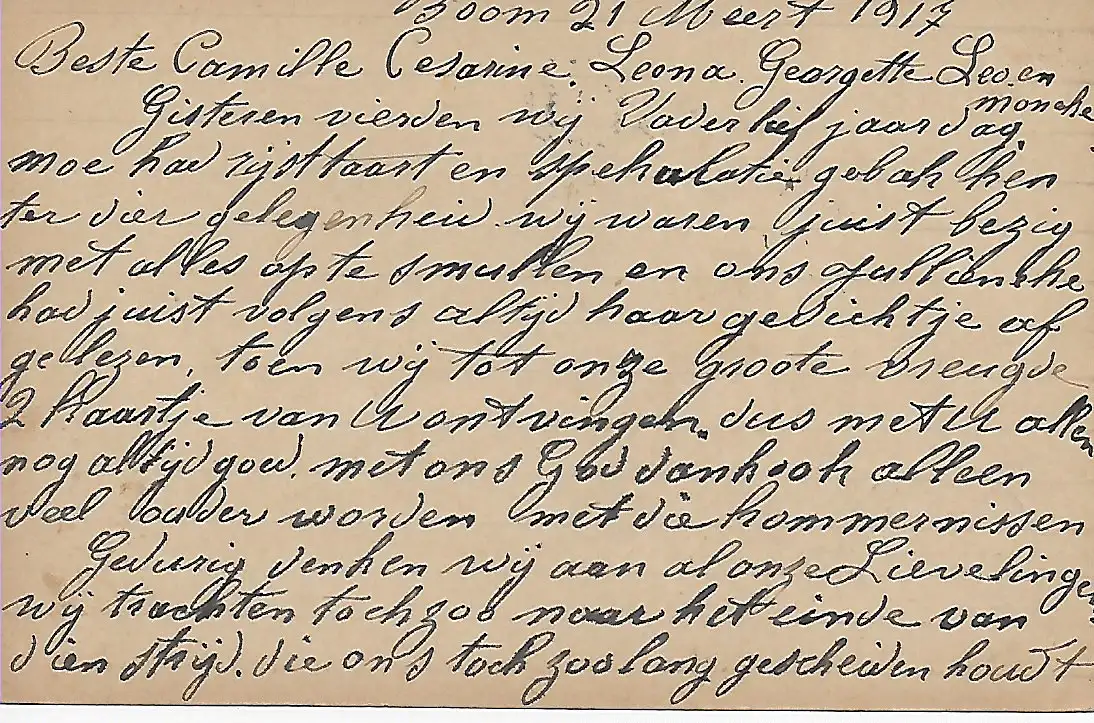 Boom 21 Meert 1917
Beste Camille Cesarine, Leona. Georgette Leo en
monche
Gisteren vierden wij Vaderlief jaardag
moe had rijsttaart en spekulatie gebak hen
ter dier gelegenheid wij waren juist bezig
met alles op te smullen en ons Julliencke
had juist volgens altijd haar gedichtje af
gelezen, toen wij tot onze groote vreugde
2 kaartje van U ontvingen. dus met U allen
nog altijd goed. met ons God dank ook alleen
veel ouder worden met die kommernissen
Gedurig denken wij aan al onze Lievelingen
wij trachten toch zoo naar het einde van
dien strijd. die ons toch zoolang gescheiden houdt